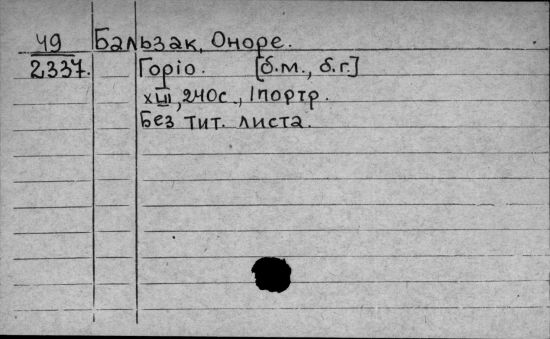 49 Бальзак, Оноре.
2337. Горіо. [б.м., б.г.]
XLII, 240с., 1портр.
Без тит. листа.